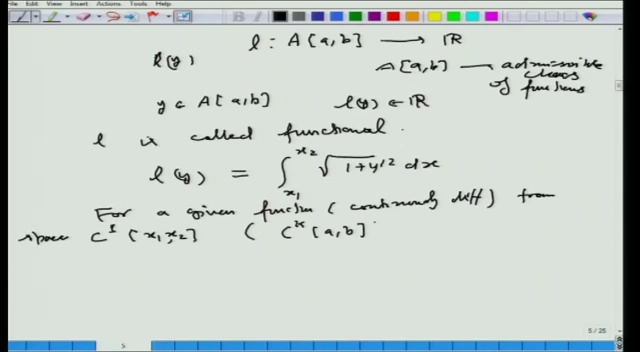 File Edit View Insert Actions Tools Help
l : A[a,b] → ℝ
l(y)
A[a,b] — admissible class of functions
y ∈ A[a,b] l(y) ∈ ℝ
l is called functional.
l(y) = ∫_{x₁}^{x₂} √(1+y'²) dx
For a given function (continuously diff) from
space C¹[x₁,x₂] ( Cᵏ[a,b]
5 / 25
5